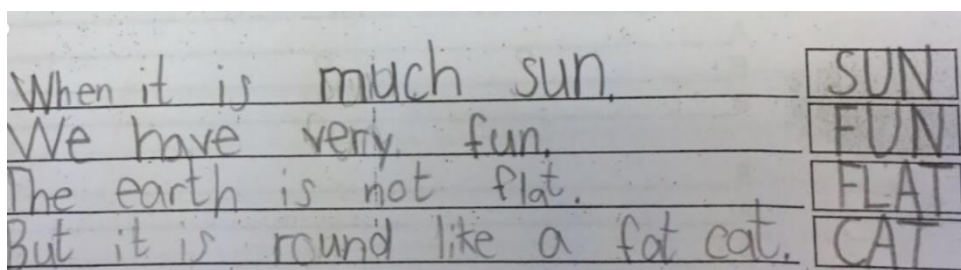 When it is much sun. SUN
We have very fun. FUN
The earth is not flat. FLAT
But it is round like a fat cat. CAT